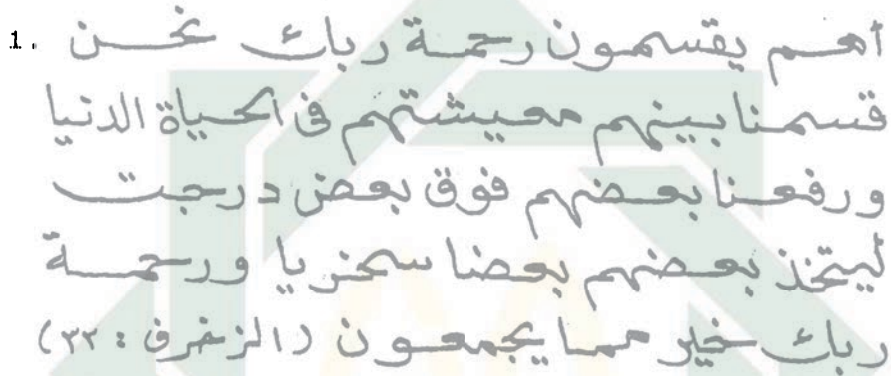 1. أهم يقسمون رحمة ربك نحن
قسمنا بينهم معيشتهم فى الحياة الدنيا
ورفعنا بعضهم فوق بعض درجت
ليتخذ بعضهم بعضا سخريا ورحمة
ربك خير مما يجمعون (الزخرف : ٣٢)